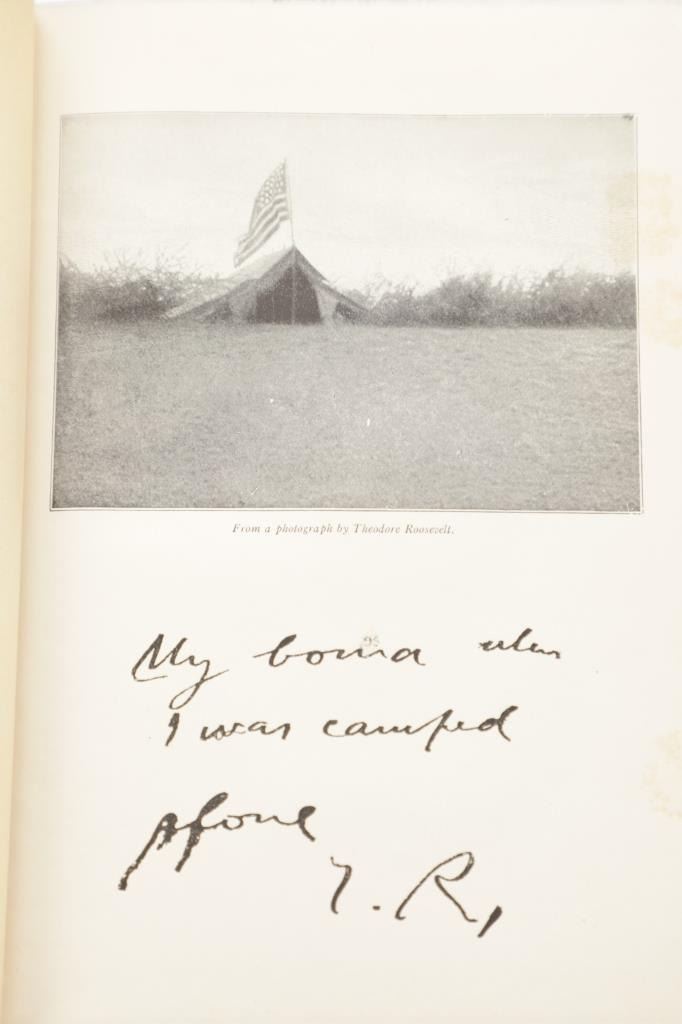 From a photograph by Theodore Roosevelt.
My boma when
I was camped
alone
T. R.